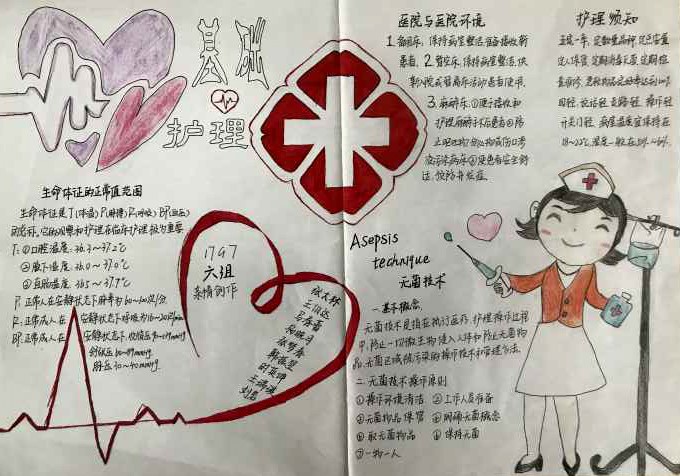 基础
护理
生命体征的正常值范围
生命体征是T(体温) P(脉搏) R(呼吸) BP(血压)
的总称,它的观察和护理在临床护理极为重要
T: ①口腔温度: 36.3~37.2℃
②腋下温度: 36.0~37.0℃
③直肠温度: 36.5~37.7℃
P: 正常人在安静状态下脉率为60~100次/分
R: 正常成人在 安静状态下呼吸为16~20次/min
BP: 正常成人在 安静状态下,收缩压90~139mmHg
舒张压60~89mmHg
脉压30~40mmHg
1747
六组
亲情创作
刘君
医院与医院环境
1. 备用床, 保持病室整洁,准备接收新
患者. 2. 暂空床, 保持病室整洁, 供
新入院或暂离床活动患者使用.
3. 麻醉床: ①便于接收和
护理麻醉手术后患者②防
止呕吐物分泌物或伤口渗
液污染病床③使患者安全舒
适,预防并发症.
护理须知
定人保管, 定期消毒灭菌, 定期检
查维修. 急救物品完好率达到100%
四轻: 说话轻 走路轻 操作轻
开关门轻. 病室温度宜保持在
18~22℃
Asepsis
technique
无菌技术
一.基本概念
无菌技术是指在执行医疗、护理操作过程
中,防止一切微生物侵入人体和防止无菌物
品、无菌区域被污染的操作技术和管理方法.
二.无菌技术操作原则
①操作环境清洁 ②工作人员准备
③无菌物品保管 ④明确无菌概念
⑤取无菌物品 ⑥保持无菌
⑦一物一人